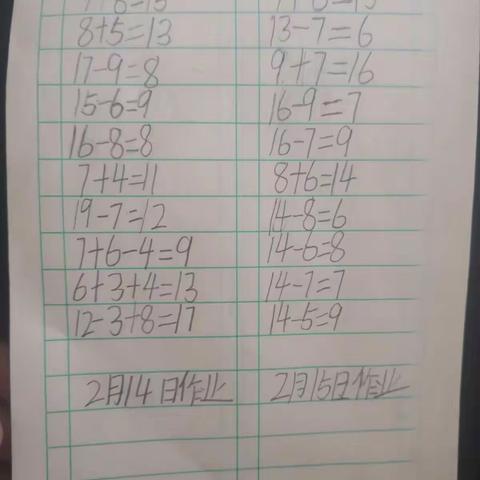 8+5=13
17-9=8
15-6=9
16-8=8
7+4=11
19-7=12
7+6-4=9
6+3+4=13
12-3+8=17
2月14日作业
13-7=6
9+7=16
16-9=7
16-7=9
8+6=14
14-8=6
14-6=8
14-7=7
14-5=9
2月15日作业